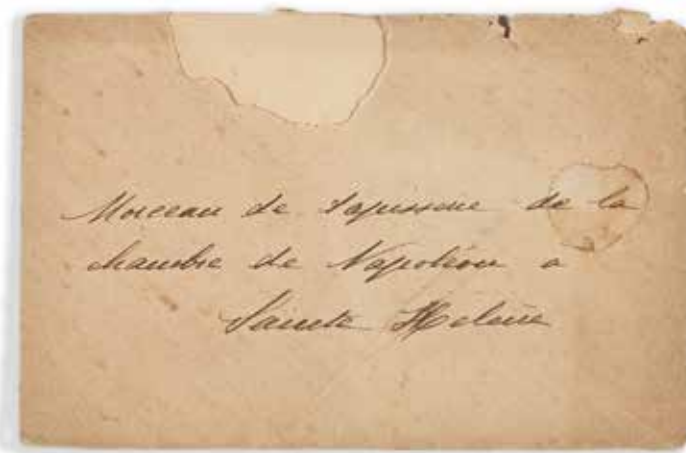 Morceau de tapisserie de la
chambre de Napoléon a
Sainte Helène